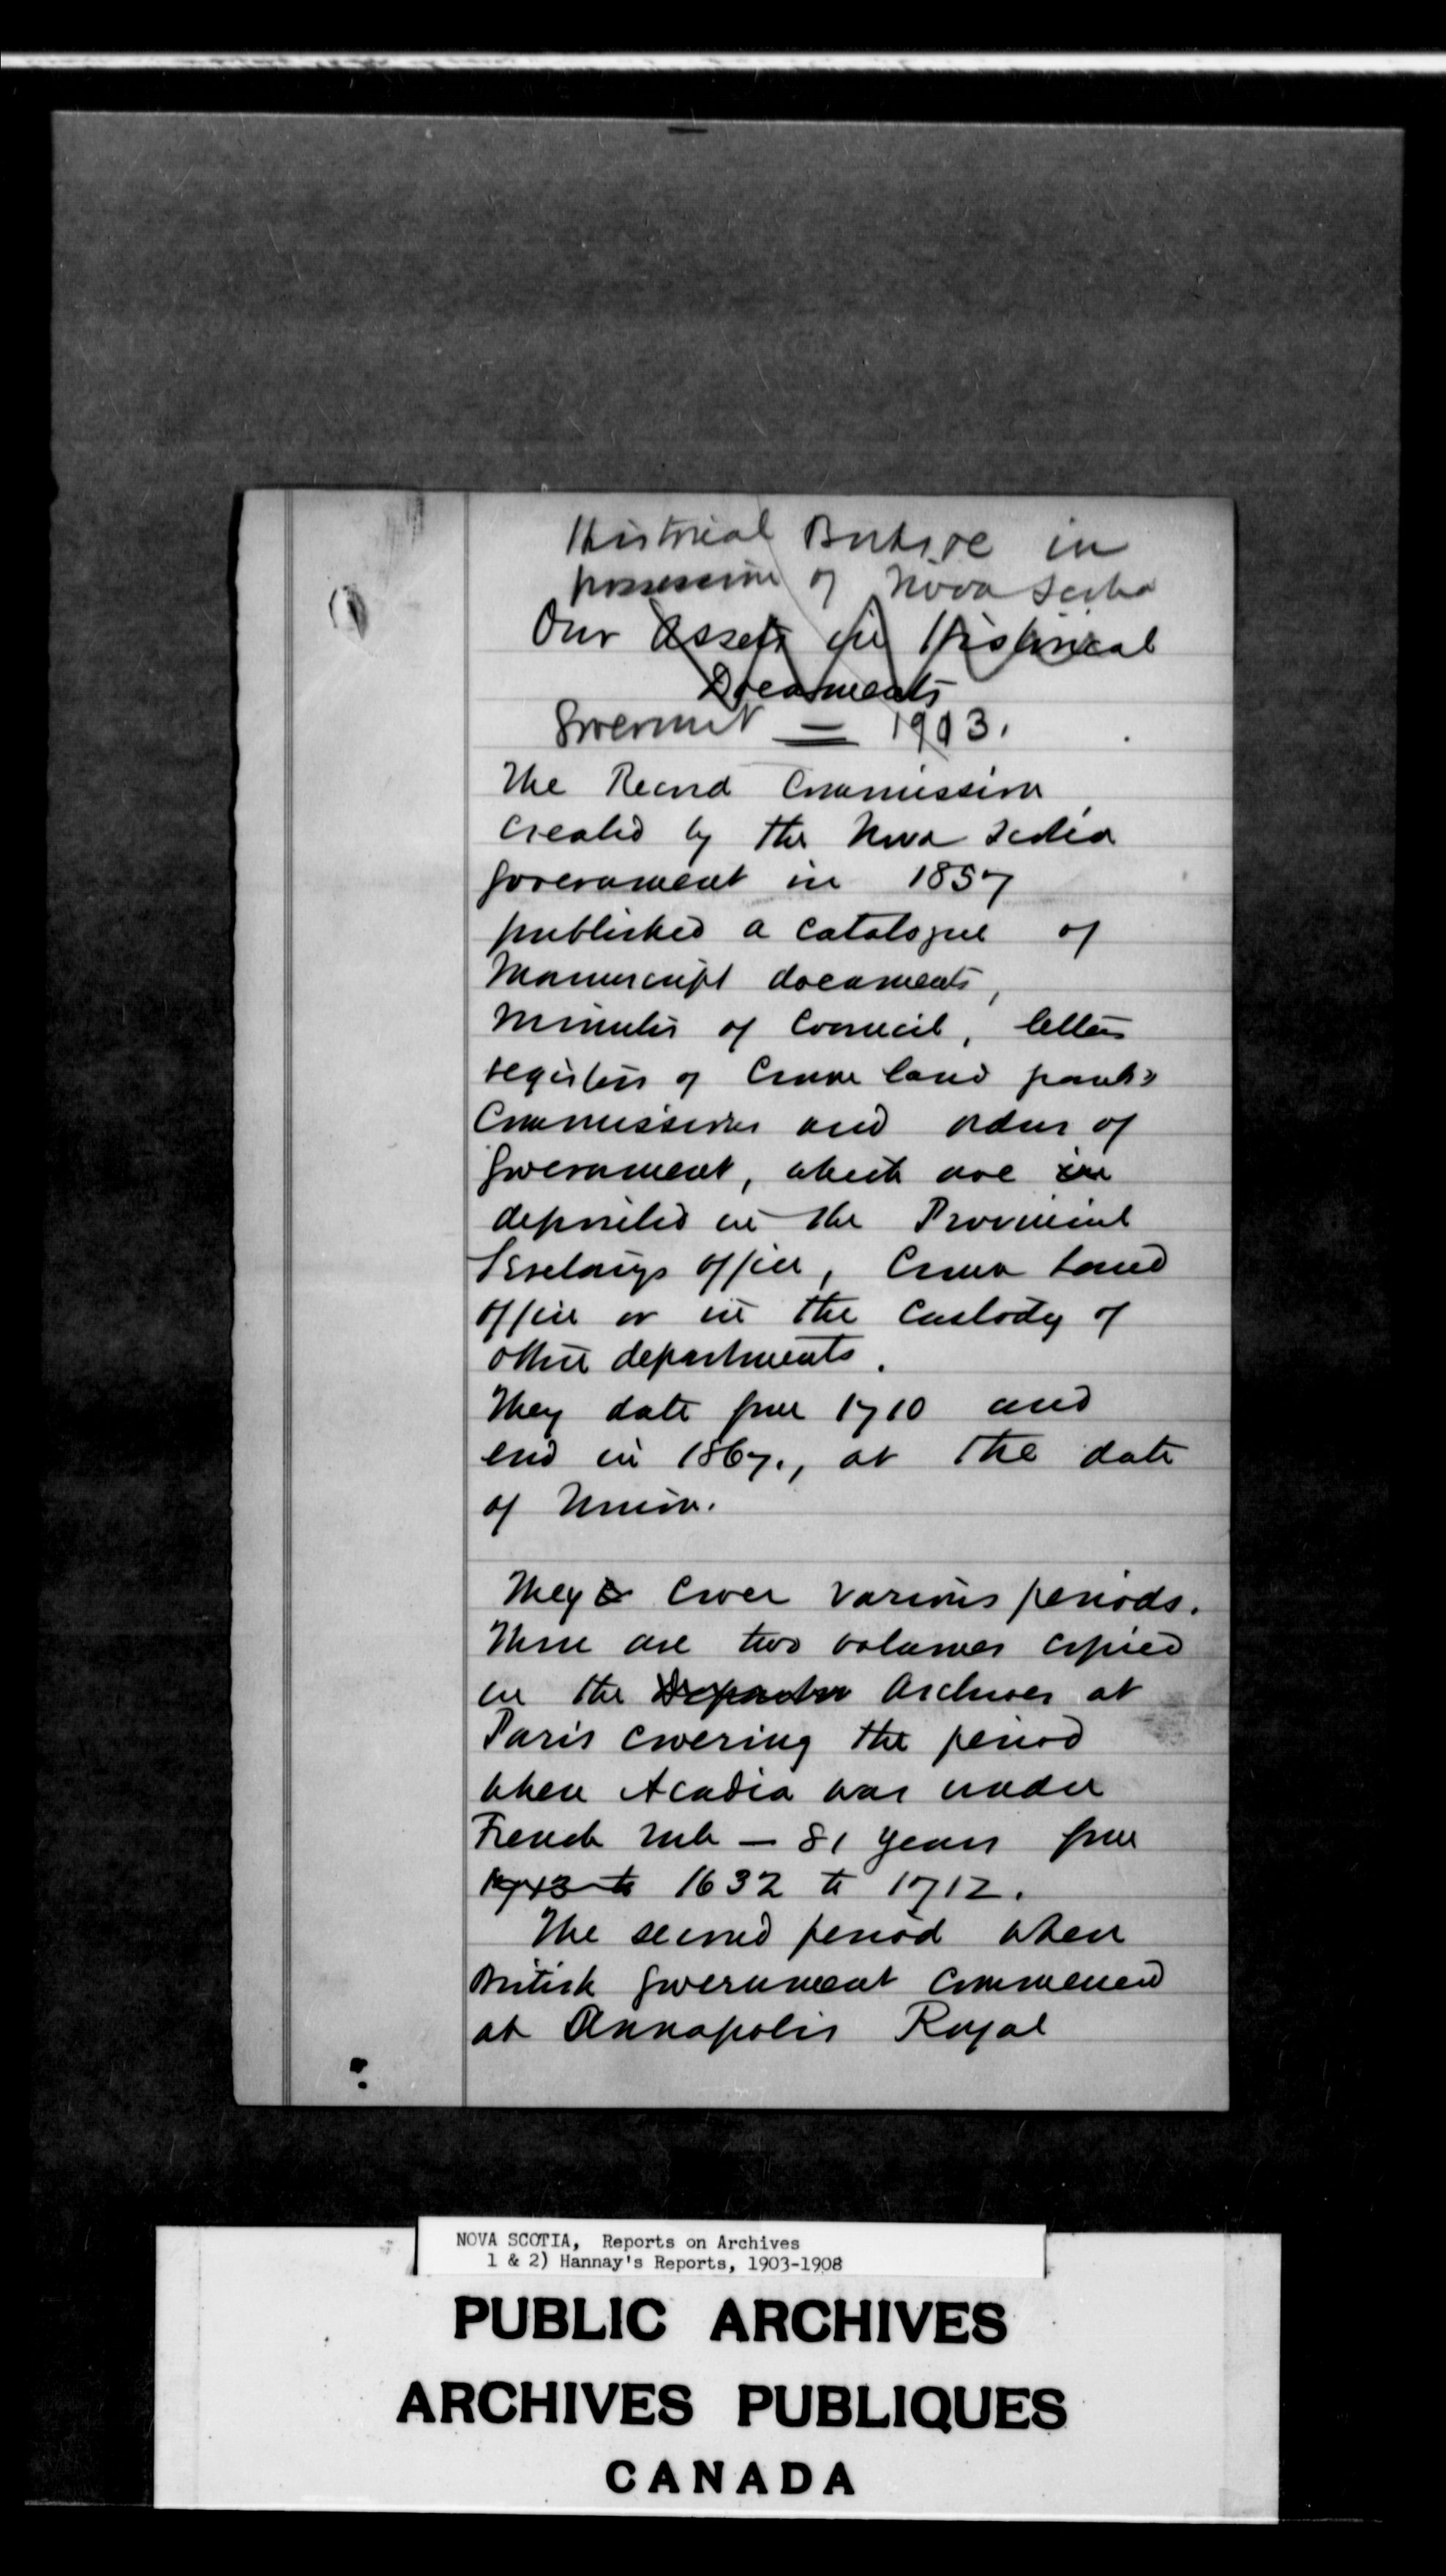 Historical in
possession of Nova Scotia
Our Assets in Historical
Documents
Government = 1903.
(1)
The Record Commission
created by the Nova Scotia
government in 1857
published a catalogue of
Manuscript documents,
Minutes of Council, letters
registers of Crown land grants
Commissions and orders of
government, which are in
deposited in the Provincial
Secretarys office, Crown Land
office or in the custody of
other departments.
They date from 1710 and
end in 1867., at the date
of Union.
They cover various periods.
There are two volumes copied
in the Archives at
Paris covering the period
when Acadia was under
French rule — 81 years from
1713 to 1632 to 1712.
The second period when
British government commenced
at Annapolis Royal
NOVA SCOTIA, Reports on Archives
1 & 2) Hannay's Reports, 1903-1908
PUBLIC ARCHIVES
ARCHIVES PUBLIQUES
CANADA